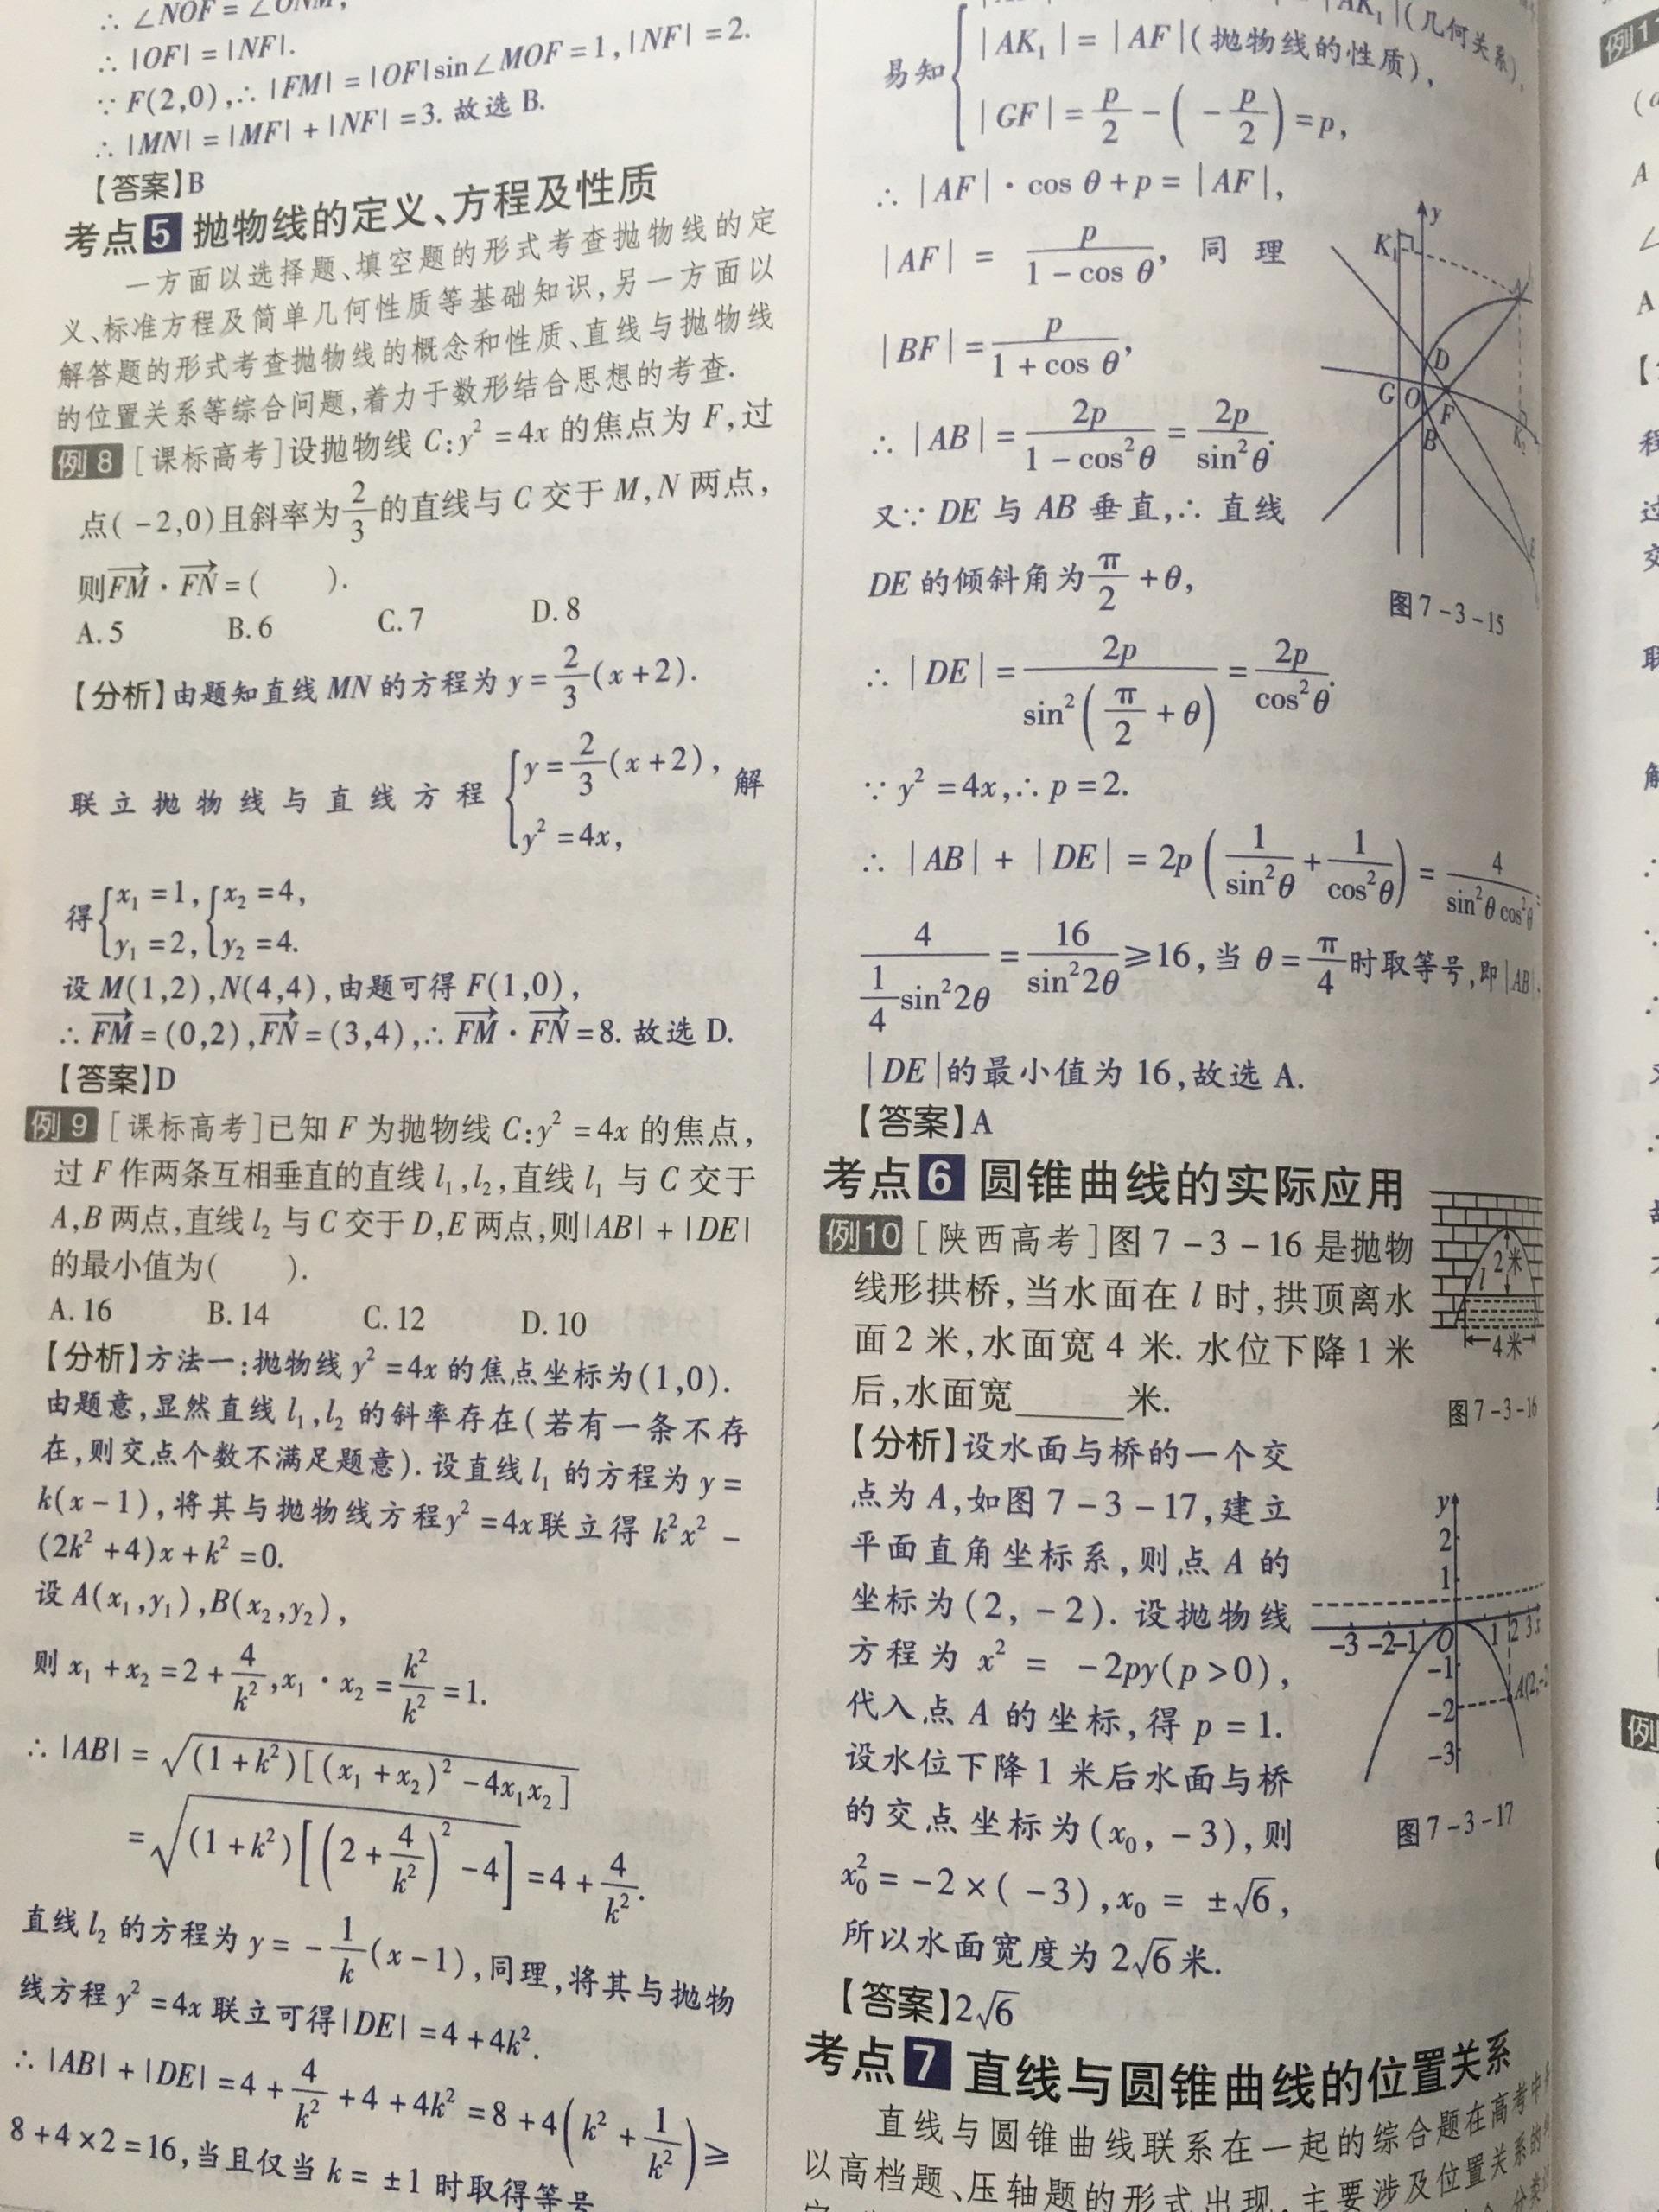 ∴ ∠NOF = ∠ONM,
∴ |OF| = |NF|.
∵ F(2,0),∴ |FM| = |OF|sin∠MOF = 1,|NF| = 2.
∴ |MN| = |MF| + |NF| = 3. 故选 B.
【答案】B
考点5 抛物线的定义、方程及性质
一方面以选择题、填空题的形式考查抛物线的定
义、标准方程及简单几何性质等基础知识,另一方面以
解答题的形式考查抛物线的概念和性质、直线与抛物线
的位置关系等综合问题,着力于数形结合思想的考查.
例8 [课标高考]设抛物线 C:y² = 4x 的焦点为 F,过
点( -2,0)且斜率为2/3的直线与 C 交于 M,N 两点,
则FM→ · FN→ = (  ).
A. 5 B. 6 C. 7 D. 8
【分析】由题知直线 MN 的方程为 y = 2/3(x + 2).
联立抛物线与直线方程 {y = 2/3(x + 2), y² = 4x, 解
得{x₁ = 1, y₁ = 2, {x₂ = 4, y₂ = 4.
设 M(1,2),N(4,4),由题可得 F(1,0),
∴ FM→ = (0,2),FN→ = (3,4),∴ FM→ · FN→ = 8. 故选 D.
【答案】D
例9 [课标高考]已知 F 为抛物线 C:y² = 4x 的焦点,
过 F 作两条互相垂直的直线 l₁,l₂,直线 l₁ 与 C 交于
A,B 两点,直线 l₂ 与 C 交于 D,E 两点,则|AB| + |DE|
的最小值为(  ).
A. 16 B. 14 C. 12 D. 10
【分析】方法一:抛物线 y² = 4x 的焦点坐标为(1,0).
由题意,显然直线 l₁,l₂ 的斜率存在(若有一条不存
在,则交点个数不满足题意). 设直线 l₁ 的方程为 y =
k(x - 1),将其与抛物线方程y² = 4x联立得 k²x² -
(2k² + 4)x + k² = 0.
设 A(x₁,y₁),B(x₂,y₂),
则 x₁ + x₂ = 2 + 4/k²,x₁ · x₂ = k²/k² = 1.
∴ |AB| = √((1 + k²)[(x₁ + x₂)² - 4x₁x₂])
= √((1 + k²)[(2 + 4/k²)² - 4]) = 4 + 4/k².
直线 l₂ 的方程为 y = -1/k(x - 1),同理,将其与抛物
线方程 y² = 4x 联立可得|DE| = 4 + 4k².
∴ |AB| + |DE| = 4 + 4/k² + 4 + 4k² = 8 + 4(k² + 1/k²) ≥
8 + 4 × 2 = 16,当且仅当 k = ±1 时取得等号
易知{ |AK₁|(几何关系),
|AK₁| = |AF|(抛物线的性质),
|GF| = p/2 - ( - p/2) = p,
∴ |AF| · cos θ + p = |AF|,
|AF| = p/(1 - cos θ), 同理
|BF| = p/(1 + cos θ),
∴ |AB| = 2p/(1 - cos²θ) = 2p/sin²θ.
又∵ DE 与 AB 垂直,∴ 直线
DE 的倾斜角为π/2 + θ,
∴ |DE| = 2p/sin²(π/2 + θ) = 2p/cos²θ.
∵ y² = 4x,∴ p = 2.
∴ |AB| + |DE| = 2p(1/sin²θ + 1/cos²θ) = 4/(sin²θ cos²θ) =
4/(1/4 sin²2θ) = 16/sin²2θ ≥ 16,当 θ = π/4时取等号,即|AB|
|DE|的最小值为 16,故选 A.
【答案】A
y
K₁
A
D
G
O
F
B
图 7 - 3 - 15
考点6 圆锥曲线的实际应用
例10 [陕西高考]图 7 - 3 - 16 是抛物
线形拱桥,当水面在 l 时,拱顶离水
面 2 米,水面宽 4 米. 水位下降 1 米
后,水面宽______米.
l
2米
4米
图 7 - 3 - 16
【分析】设水面与桥的一个交
点为 A,如图 7 - 3 - 17,建立
平面直角坐标系,则点 A 的
坐标为(2, - 2). 设抛物线
方程为 x² = - 2py(p > 0),
代入点 A 的坐标,得 p = 1.
设水位下降 1 米后水面与桥
的交点坐标为(x₀, - 3),则
x₀² = - 2 × ( - 3),x₀ = ±√6,
所以水面宽度为 2√6米.
【答案】2√6
y
2
1
-3 -2 -1 O 1 2 3 x
-1
-2
A(2,-2
-3
图 7 - 3 - 17
考点7 直线与圆锥曲线的位置关系
直线与圆锥曲线联系在一起的综合题在高考中
以高档题、压轴题的形式出现,主要涉及位置关系的
例1
例